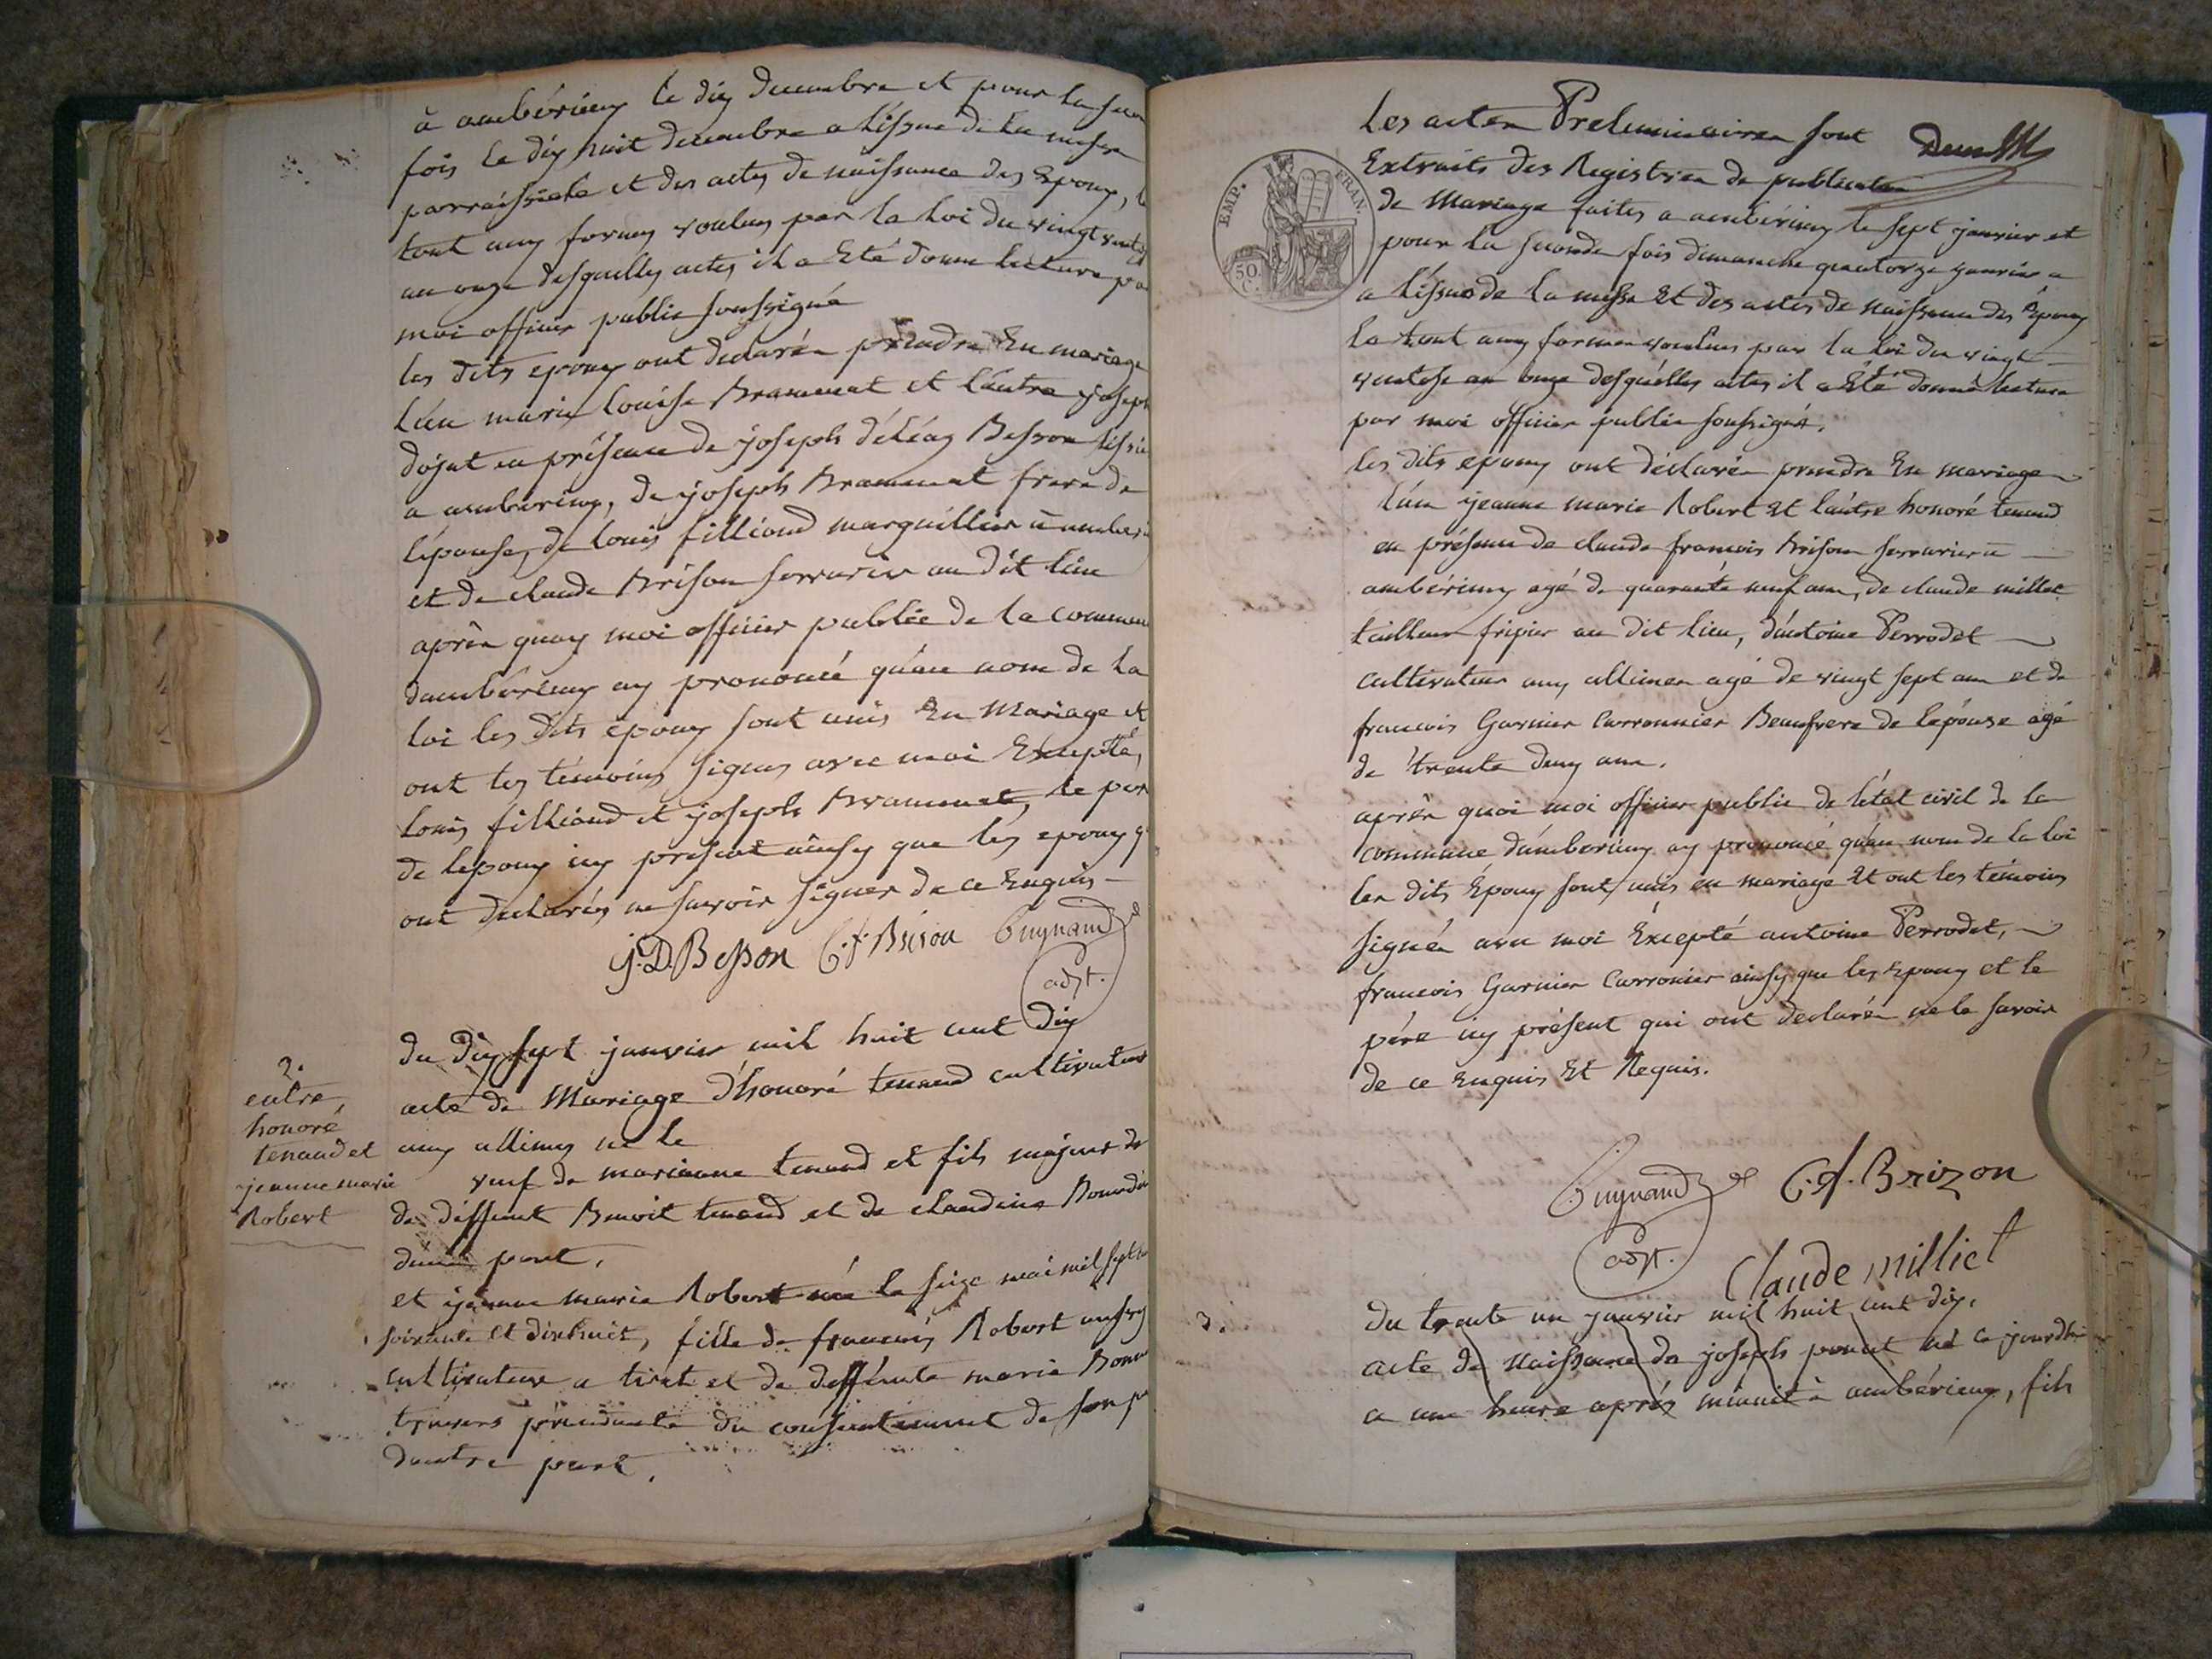 à ambérieux le dix decembre et pour la secon
fois le dix huit decembre a l'issue de la messe
parroissiale et des actes de naissance des Epoux, le
tout aux formes voulues par la loi du vingt vento
an onze desquelles actes il a Eté donné lecture pa
moi officier public soussigné
les dits epoux ont declarés prendre En mariage
l'un marie louise Brammerat et l'autre joseph
dojat en présence de joseph déléaz Besson
a ambérieux, de joseph Brammerat frere de
l'épouse, de louis fillioud marguillier a amberi
et de claude Brison serrurier au dit lieu
après quoy moi officier public de la commun
dambérieux ay prononcé qu'au nom de la
loi les dits époux sont unis En Mariage et
ont les témoins signes avec moi Excepté
louis fillioud et joseph Brammerat, le per
de lepoux icy présent ainsy que les epoux q
ont declarés ne savoir signer de ce Enquis
j.D. Besson C.f. Brison Cuynaud
adjt.
2.
entre
honoré
tenaud et
jeanne marie
Robert
du dix sept janvier mil huit cent dix
acte de Mariage d'honoré tenaud cultivateur
aux allimes né le
veuf de marianne tenaud et fils majeur de
de deffunt Benoit tenaud et de claudine Bourdin
dune part,
et jeanne marie Robert née le seize mai mil sept ce
soixante et dixhuit, fille de francois Robert
cultivateur a tiret et de deffunte marie
du consentement de son pe
dautre part.
EMP. FRAN.
50.
C.
Les actes Preliminaires sont
Extraits des Registres de publication
de Mariage faites a ambérieux le sept janvier et
pour la seconde fois dimanche quatorze janvier a
a l'issue de la messe Et des actes de naissance des Epoux
le tout aux formes voulues par la loi du vingt
ventose an onze desquelles actes il a Eté donné lecture
par moi officier public soussigné.
les dits epoux ont déclarés prendre En mariage
l'un jeanne marie Robert Et lautre honoré tenaud
en présence de claude francois Brison serrurier a
ambérieux agé de quarante neuf ans, de claude millet
tailleur fripier au dit lieu, d'antoine Perrodet
cultivateur aux allimes agé de vingt sept ans et de
francois Garnier Carronnier Beaufrere de lepouse agé
de trente deux ans.
après quoi moi officier public de l'état civil de la
commune d'ambérieux ay prononcé qu'au nom de la loi
les dits Époux sont unis en mariage Et ont les témoins
signés avec moi Excepté antoine Perrodet,
francois Garnier Carronier ainsy que les Epoux et le
père icy présent qui ont declarés ne le savoir
de ce Enquis Et Requis.
Cuynaud C.f. Brizon
adjt.
Claude milliet
3.
du trente un janvier mil huit cent dix.
acte de naissance de joseph né ce jourdhui
a une heure après minuit à ambérieux, fils